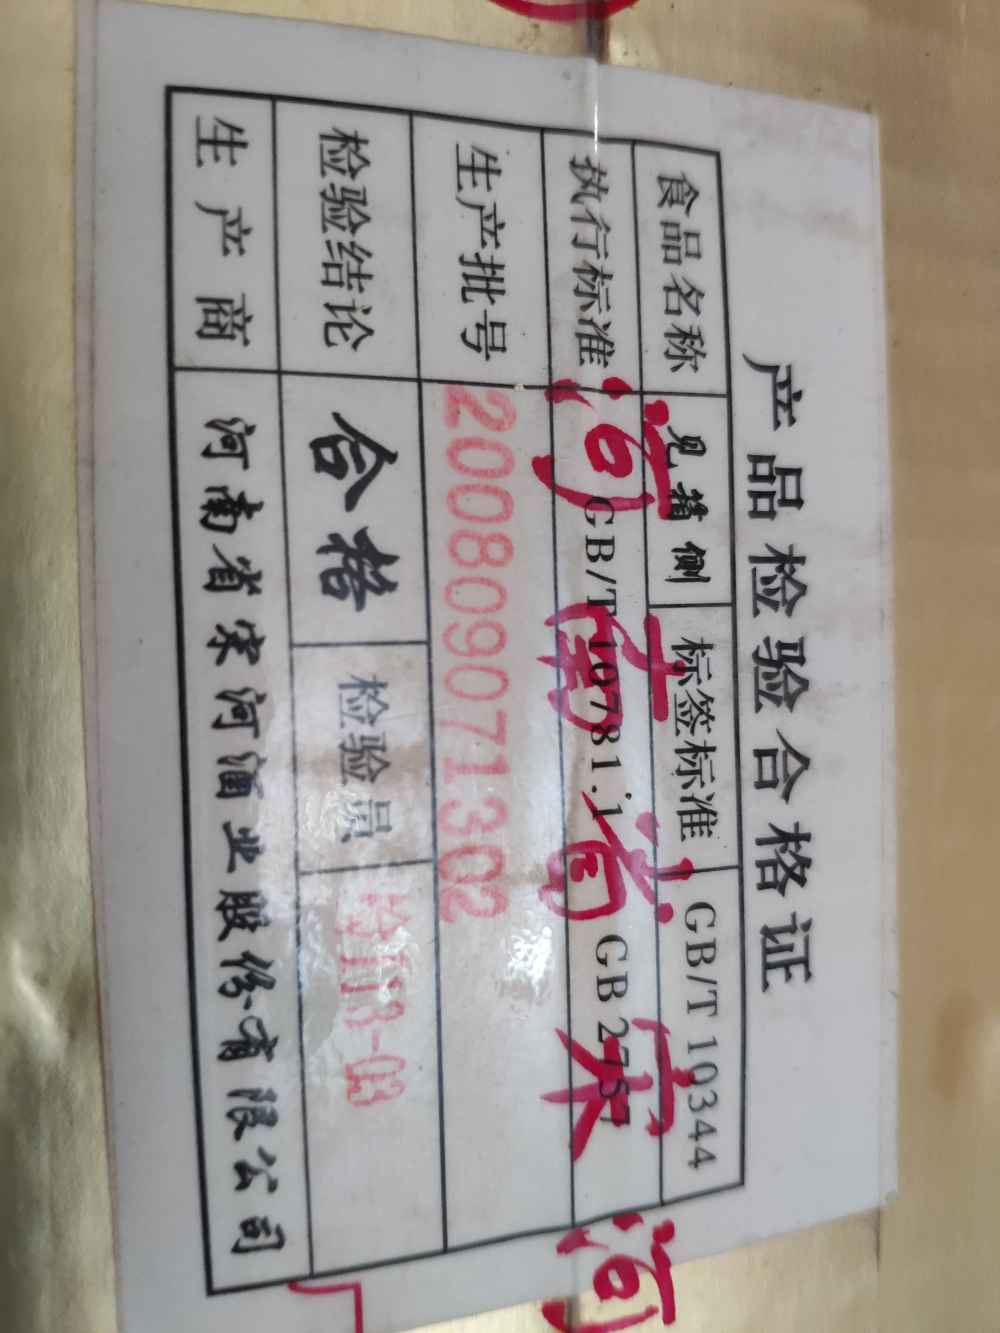 产品检验合格证
食品名称 见箱侧 标签标准 GB/T 10344
执行标准 GB/T 10781.1 GB 2757
生产批号 200809071302
检验结论 合格 检验员 03
生产商 河南省宋河酒业股份有限公司
河南省宋河